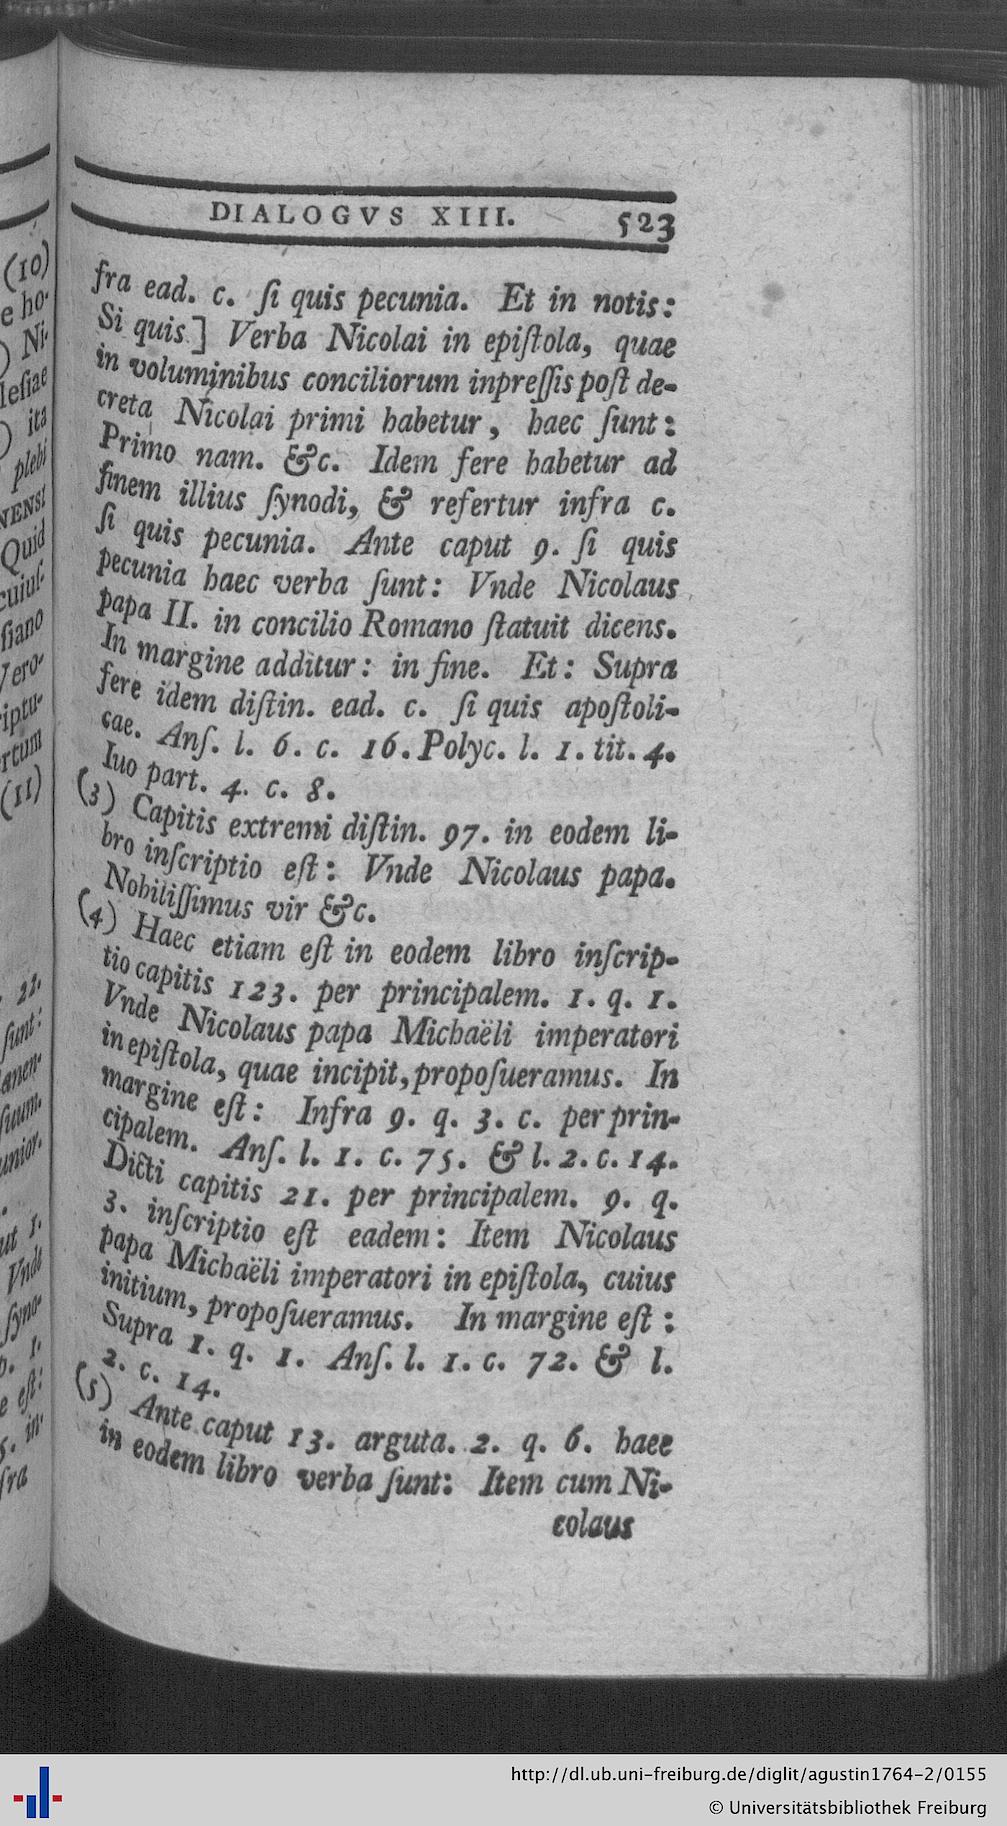 DIALOGVS XIII. 523
fra ead. c. ſi quis pecunia. Et in notis:
Si quis] Verba Nicolai in epiſtola, quae
in voluminibus conciliorum inpreſſis poſt de-
creta Nicolai primi habetur, haec ſunt:
Primo nam. &c. Idem fere habetur ad
finem illius ſynodi, & refertur infra c.
ſi quis pecunia. Ante caput 9. ſi quis
pecunia haec verba ſunt: Vnde Nicolaus
papa II. in concilio Romano ſtatuit dicens.
In margine additur: in fine. Et: Supra
fere idem diſtin. ead. c. ſi quis apoſtoli-
cae. Anſ. l. 6. c. 16. Polyc. l. 1. tit. 4.
Iuo part. 4. c. 8.
(3) Capitis extremi diſtin. 97. in eodem li-
bro inſcriptio eſt: Vnde Nicolaus papa.
Nobiliſſimus vir &c.
(4) Haec etiam eſt in eodem libro inſcrip-
tio capitis 123. per principalem. 1. q. 1.
Vnde Nicolaus papa Michaëli imperatori
in epiſtola, quae incipit, propoſueramus. In
margine eſt: Infra 9. q. 3. c. per prin-
cipalem. Anſ. l. 1. c. 75. & l. 2. c. 14.
Dicti capitis 21. per principalem. 9. q.
3. inſcriptio eſt eadem: Item Nicolaus
papa Michaëli imperatori in epiſtola, cuius
initium, propoſueramus. In margine eſt:
Supra 1. q. 1. Anſ. l. 1. c. 72. & l.
2. c. 14.
(5) Ante caput 13. arguta. 2. q. 6. haec
in eodem libro verba ſunt: Item cum Ni-
colaus
(10)
e ho-
) Ni-
leſiae
) ita
plebi
NENSI
Quid
cuiuſ-
ſiano
Vero-
riptu-
rtum
(11)
22.
ſunt:
anen-
ſuum.
unior.
ut 1.
Vnde
ſyno-
p. 1.
e eſt:
5. in-
fra
http://dl.ub.uni-freiburg.de/diglit/agustin1764-2/0155
© Universitätsbibliothek Freiburg